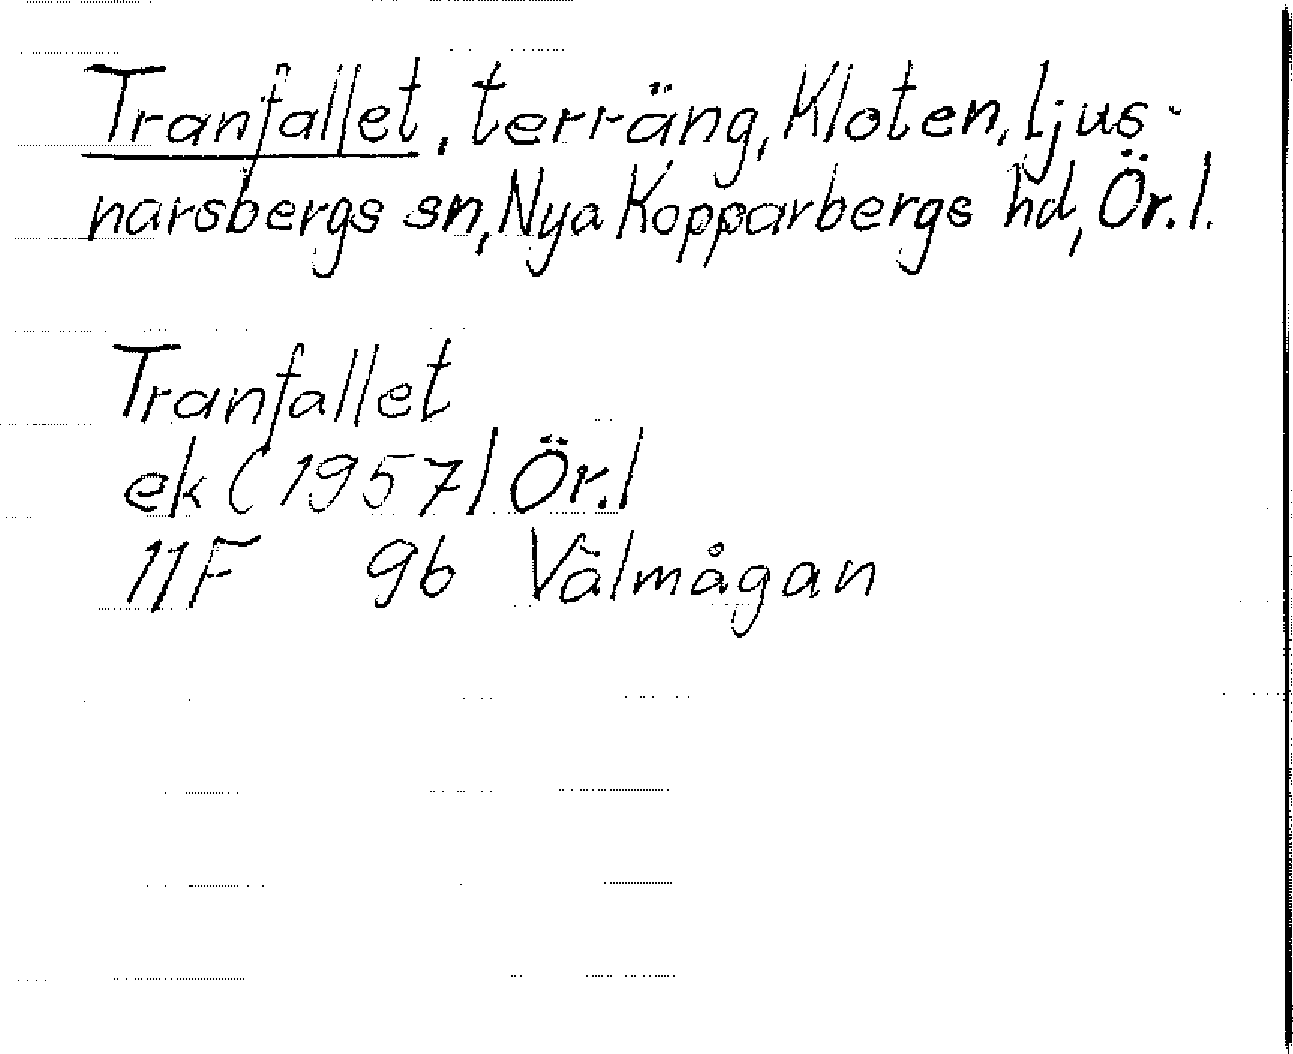 Tranfallet, terräng, Kloten, Ljus-
narsbergs sn, Nya Kopparbergs hd, Ör.l.
Tranfallet
ek (1957) Ör.l
11F 9b Välmågan